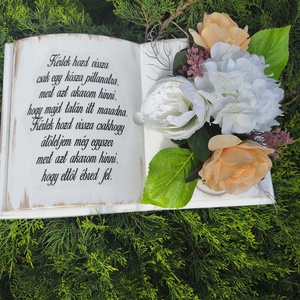 Kérlek hozd vissza
csak egy kósza pillanatra,
mert azt akarom hinni,
hogy majd talán itt maradna.
Kérlek hozd vissza csakhogy
átöleljem még egyszer
mert azt akarom hinni,
hogy ettől ébred fel.